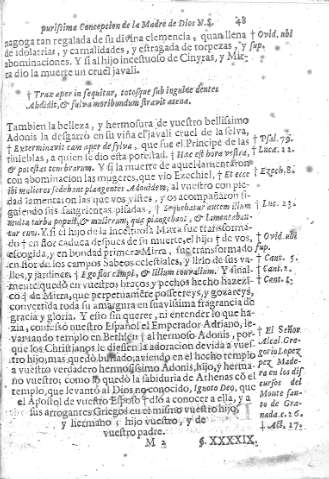 purissima Concepcion de la Madre de Dios N.S. 48
nagoga tan regalada de su divina clemencia, quan llena
de idolatrias, y carnalidades, y estragada de torpezas, y
abominaciones. Y si al hijo incestuoso de Cinyras, y Mir-
ra dio la muerte un cruel javali.
† Ovid. ubi
sup.
† Trux aper insequitur, totosque sub inguine dentes
Abdidit, & fulva moribundum stravit arena.
Tambien la belleza, y hermosura de vuestro bellissimo
Adonis la desgarrò en su viña el javali cruel de la selva,
† Exterminavit eam aper de selva, que fue el Principe de las
tinieblas, a quien se dio esta potestad. † Haec est hora vestra,
& potestas tenebrarum. Y si la muerte de aquel lamentaron
con abominacion las mugeres, que vio Ezechiel, † Et ecce
ibi mulieres sedebant plangentes Adonidem, al vuestro con pie-
dad lamentaron las que vos vistes, y os acompañaron si-
guiendo sus sangrientas pisadas, † Sequebatur autem illum
multa turba populi, & mulierum, quae plangebant, & lamentaban-
tur eum. Y si el hijo de la incestuosa Mirra fue transforma-
do † en flor caduca despues de su muerte, el hijo † de vos,
escogida, y en bondad primera Mirra, fue transformado
en flor de los campos Sabeos celestiales, y lirio de sus va-
lles, y jardines. † Ego flos campi, & lilium convallium. Y final-
mente quedò en vuestros braços y pechos hecho hazezi-
co † de Mirra, que perpetuamente posseereys, y gozareys,
convertida toda su amargura en suavissima fragrancia de
gracia y gloria. Y esto sin querer, ni entender lo que ha-
zia, confessò nuestro Español el Emperador Adriano, le-
vantando templo en Bethlen † al hermoso Adonis, por-
que los Christianos le diessen la adoracion devida a vues-
tro hijo, mas quedò burlado, aviendo en el hecho templo
a vuestro verdadero hermosissimo Adonis, hijo, y herma-
no vuestro; como se quedò la sabiduria de Athenas cõ el
templo, que levantò al Dios no conocido, Ignoto Deo, que
el Apostol de vuestro Esposo † dio a conocer a ella, y a
sus arrogantes Griegos en el mismo vuestro hijo,
y hermano † hijo vuestro, y de
vuestro padre.
† Psal. 79.
† Luca. 22.
† Ezech. 8.
Luc. 23.
† Ovid. ubi
sup.
† Cant. 5.
† Cant. 2.
† Cant. 1.
† El Señor
Alcal. Gre-
gorio Lopez
Made-
ra en los dis-
cursos del
Monte san-
to de Gra-
nada c. 26.
† Act. 17.
M 2 §. XXXXIX.